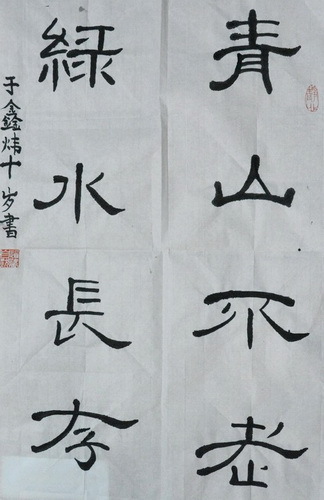 青山不老
綠水長存
于鑫炜十岁書